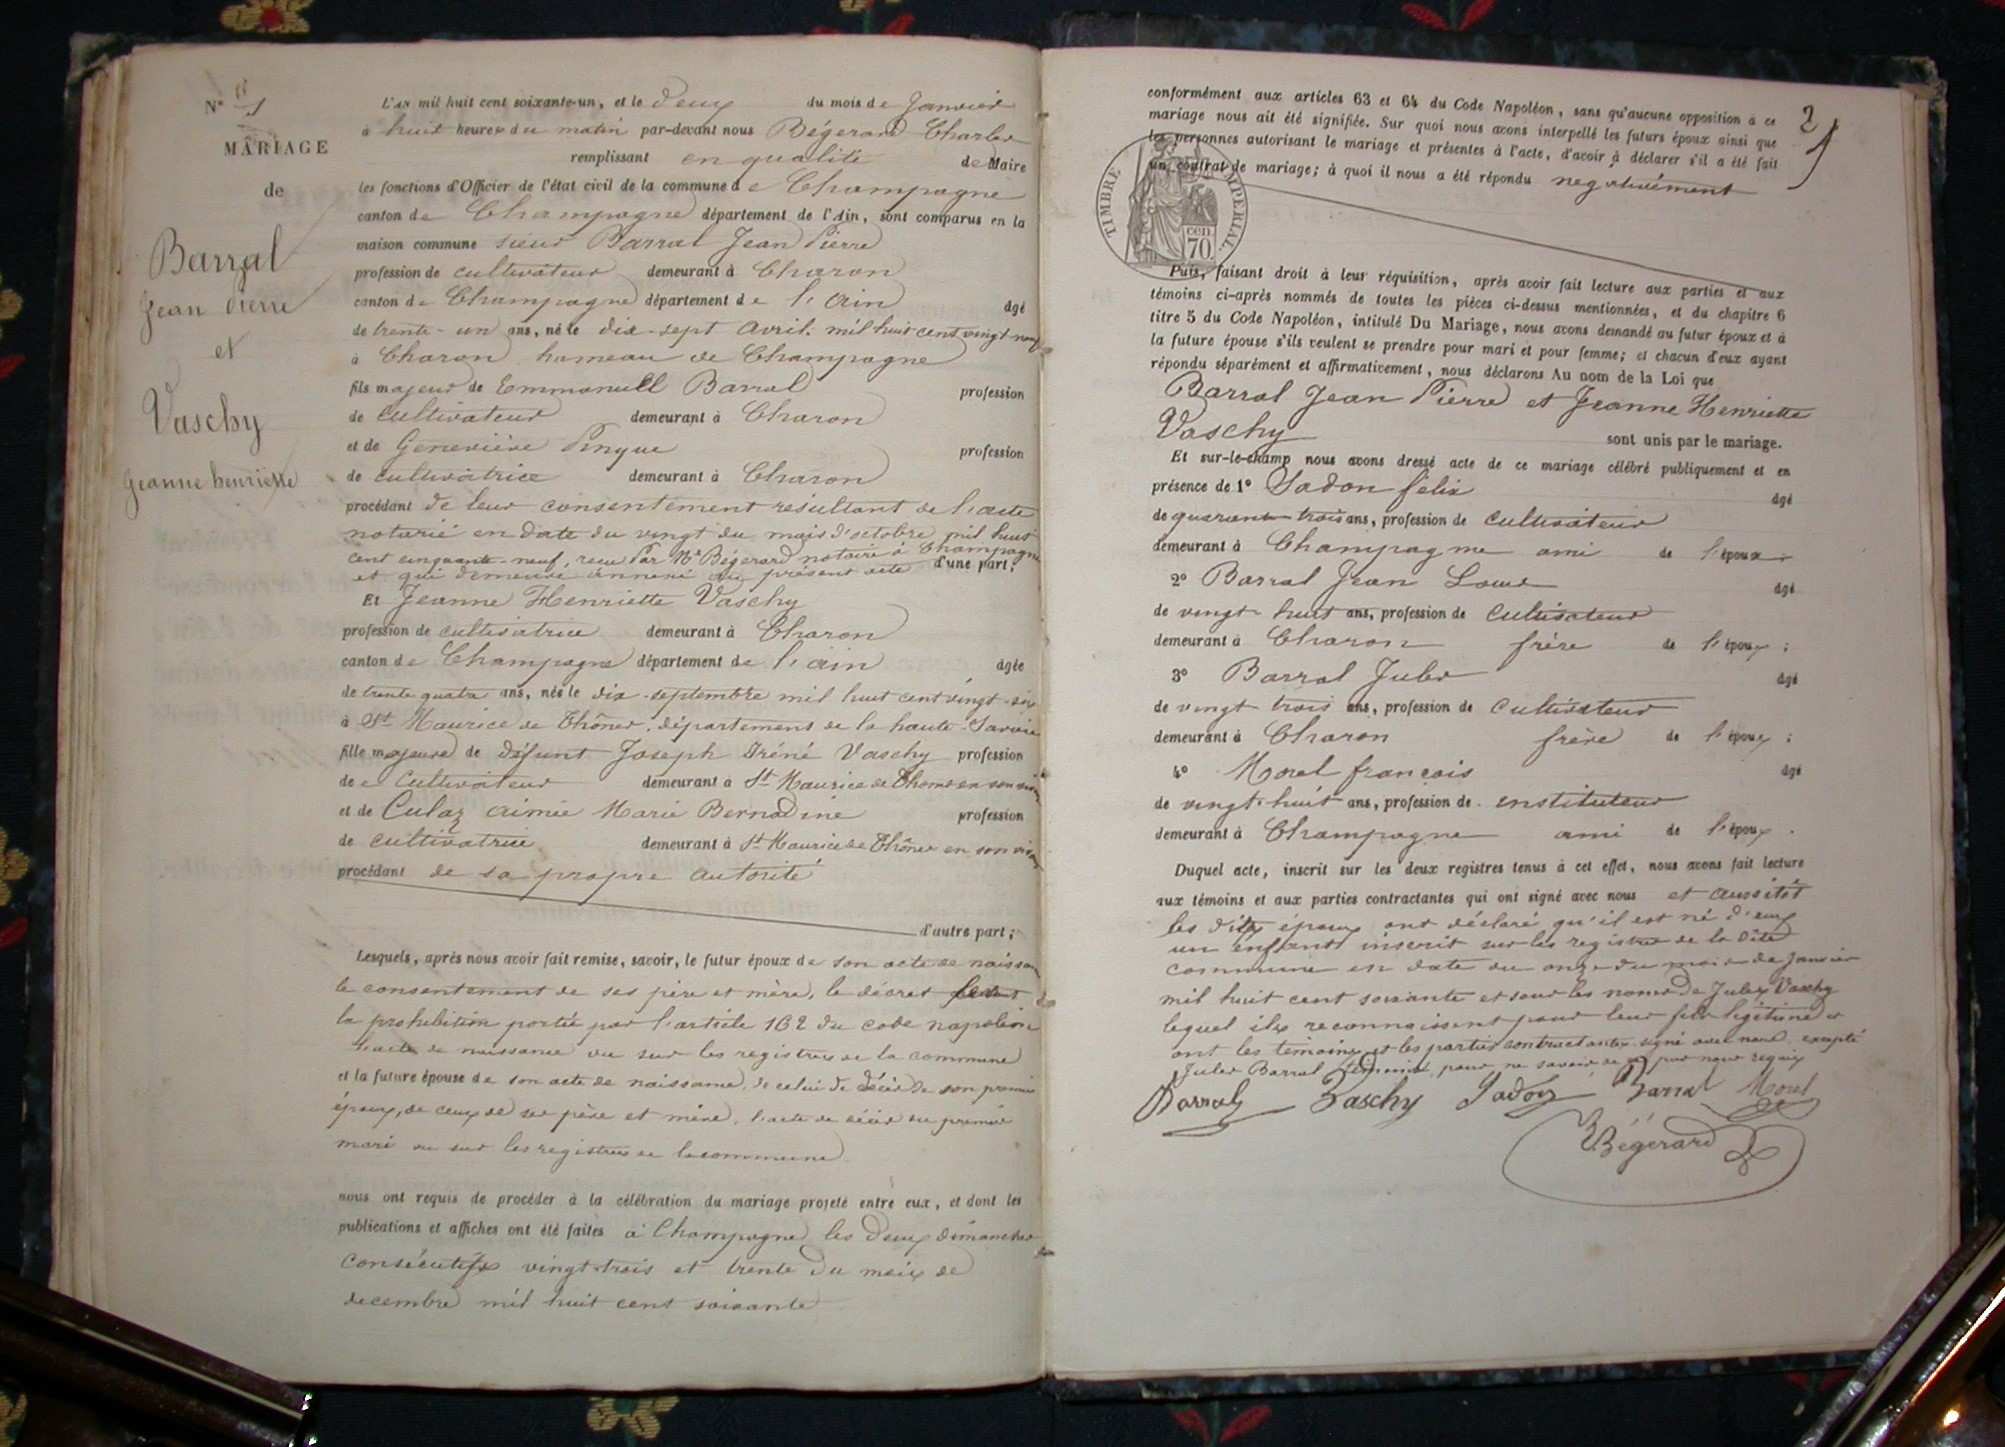 N° 1
MARIAGE
de
Barral
Jean Pierre
et
Vaschy
Jeanne henriette
L'AN mil huit cent soixante-un, et le deux du mois de Janvier
à huit heures du matin par-devant nous Bégerard Charles
remplissant en qualité de Maire
les fonctions d'Officier de l'état civil de la commune de Champagne
canton de Champagne département de l'Ain, sont comparus en la
maison commune sieur Barral Jean Pierre
profession de cultivateur demeurant à Charon
canton de Champagne département de l'ain âgé
de trente-un ans, né le dix-sept avril mil huit cent vingt-neuf
à Charon hameau de Champagne
fils majeur de Emmanuell Barral profession
de cultivateur demeurant à Charon
et de Geneviève Pingue profession
de cultivatrice demeurant à Charon
procédant de leur consentement résultant de l'acte
notarié en date du vingt du mois d'octobre mil huit
cent cinquante-neuf, reçu Par Me Bégerard notaire à Champagne
et qui demeure annexé au présent acte d'une part;
Et Jeanne Henriette Vaschy
profession de cultivatrice demeurant à Charon
canton de Champagne département de l'ain âgée
de trente quatre ans, née le dix septembre mil huit cent vingt-six
à St Maurice de Thônes, département de la haute Savoie
fille majeure de défunt Joseph Iréné Vaschy profession
de cultivateur demeurant à St Maurice de Thones en son vivant
et de Culaz aimée Marie Bernadine profession
de cultivatrice demeurant à St Maurice de Thônes en son vivant
procédant de sa propre autorité
d'autre part;
Lesquels, après nous avoir fait remise, savoir, le futur époux de son acte de naissance
le consentement de ses père et mère, le décret
la prohibition portée par l'article 162 du code napoléon
l'acte de naissance vu sur les registres de la commune
et la future épouse de son acte de naissance, de celui de décès de son premier
époux, de ceux de ses père et mère, l'acte de décès du premier
mari vu sur les registres de la commune
nous ont requis de procéder à la célébration du mariage projeté entre eux, et dont les
publications et affiches ont été faites à Champagne les deux dimanches
consécutifs vingt-trois et trente du mois de
decembre mil huit cent soixante
2
conformément aux articles 63 et 64 du Code Napoléon, sans qu'aucune opposition à ce
mariage nous ait été signifiée. Sur quoi nous avons interpellé les futurs époux ainsi que
les personnes autorisant le mariage et présentes à l'acte, d'avoir à déclarer s'il a été fait
un contrat de mariage; à quoi il nous a été répondu negativement
TIMBRE IMPERIAL.
70 cen
Puis, faisant droit à leur réquisition, après avoir fait lecture aux parties et aux
témoins ci-après nommés de toutes les pièces ci-dessus mentionnées, et du chapitre 6
titre 5 du Code Napoléon, intitulé Du Mariage, nous avons demandé au futur époux et à
la future épouse s'ils veulent se prendre pour mari et pour femme; et chacun d'eux ayant
répondu séparément et affirmativement, nous déclarons Au nom de la Loi que
Barral Jean Pierre et Jeanne Henriette
Vaschy sont unis par le mariage.
Et sur-le-champ nous avons dressé acte de ce mariage célébré publiquement et en
présence de 1° Sadon félix âgé
de quarante-trois ans, profession de cultivateur
demeurant à Champagne ami de l'époux
2° Barral Jean Louis âgé
de vingt-huit ans, profession de cultivateur
demeurant à Charon frère de l'époux;
3° Barral Jules âgé
de vingt trois ans, profession de cultivateur
demeurant à Charon frère de l'époux;
4° Morel françois âgé
de vingt-huit ans, profession de instituteur
demeurant à Champagne ami de l'époux.
Duquel acte, inscrit sur les deux registres tenus à cet effet, nous avons fait lecture
aux témoins et aux parties contractantes qui ont signé avec nous et aussitôt
les dits époux ont déclaré qu'il est né d'eux
un enfant inscrit sur les registres de la dite
commune en date du onze du mois de Janvier
mil huit cent soixante et sous les noms de Jules Vaschy
lequel ils reconnaissent pour leur fils légitime et
ont les témoins et les parties contractantes signé avec nous excepté
Jules Barral témoin pour ne savoir de ce par nous requis
Barral Vaschy Sadon Barral Morel
Bégerard